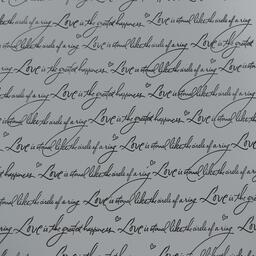 Love is the greatest happiness. Love is eternal like the circle of a ring
is eternal like the circle of a ring Love is eternal like the circle of a ring
ring Love is the greatest happiness. Love is eternal like the circle of a ring
Love is the greatest happiness. Love is eternal like the circle of a ring
the circle of a ring Love is the greatest happiness. Love is
Love is eternal like the circle of a ring Love is the greatest happiness.
Love is eternal like the circle of a ring Love is eternal like the circle
happiness. Love is eternal like the circle of a ring Love is eternal
like the circle of a ring Love is the greatest happiness. Love
is eternal like the circle of a ring Love is the greatest happiness.
Love is the greatest happiness. Love is eternal like the circle of a ring
of a ring Love is eternal like the circle of a ring Love is